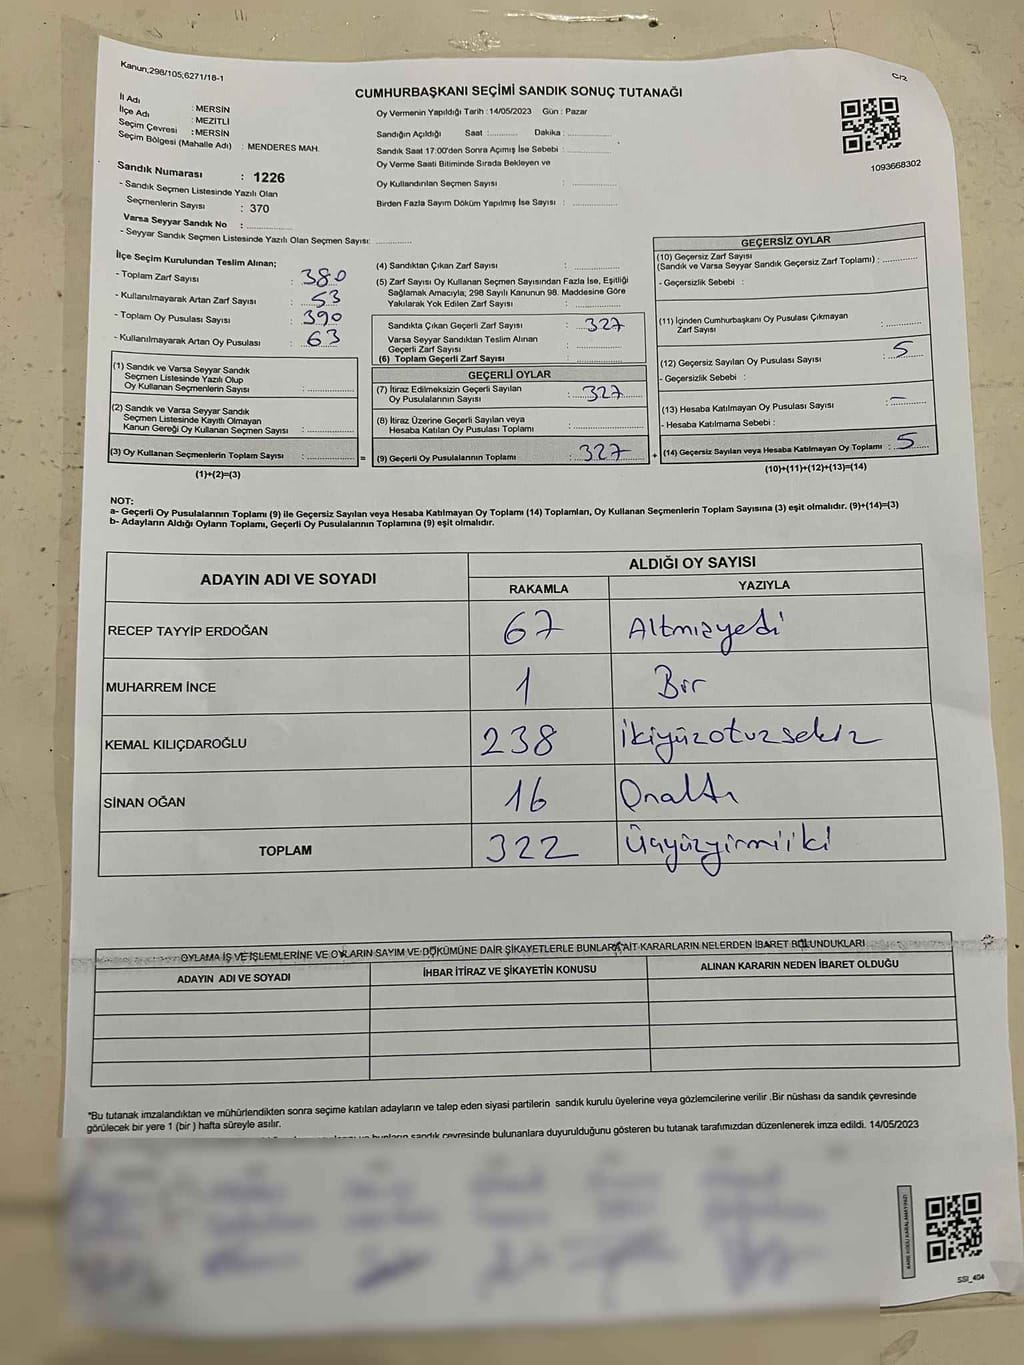 Kanun;298/105;6271/18-1
C/2
CUMHURBAŞKANI SEÇİMİ SANDIK SONUÇ TUTANAĞI
İl Adı : MERSİN
İlçe Adı : MEZİTLİ
Seçim Çevresi : MERSİN
Seçim Bölgesi (Mahalle Adı) : MENDERES MAH.
Sandık Numarası : 1226
- Sandık Seçmen Listesinde Yazılı Olan
Seçmenlerin Sayısı : 370
Varsa Seyyar Sandık No : ............
- Seyyar Sandık Seçmen Listesinde Yazılı Olan Seçmen Sayısı: ............
Oy Vermenin Yapıldığı Tarih : 14/05/2023 Gün : Pazar
Sandığın Açıldığı Saat :.......... Dakika : ..............
Sandık Saat 17:00'den Sonra Açımış İse Sebebi : ..............
Oy Verme Saati Bitiminde Sırada Bekleyen ve
Oy Kullandırılan Seçmen Sayısı : ..............
Birden Fazla Sayım Döküm Yapılmış İse Sayısı : ..............
1093668302
İlçe Seçim Kurulundan Teslim Alınan;
- Toplam Zarf Sayısı : 380
- Kullanılmayarak Artan Zarf Sayısı : 53
- Toplam Oy Pusulası Sayısı : 390
- Kullanılmayarak Artan Oy Pusulası : 63
(1) Sandık ve Varsa Seyyar Sandık
Seçmen Listesinde Yazılı Olup
Oy Kullanan Seçmenlerin Sayısı : ............
(2) Sandık ve Varsa Seyyar Sandık
Seçmen Listesinde Kayıtlı Olmayan
Kanun Gereği Oy Kullanan Seçmen Sayısı : ............
(3) Oy Kullanan Seçmenlerin Toplam Sayısı : ............ =
(1)+(2)=(3)
(4) Sandıktan Çıkan Zarf Sayısı : ............
(5) Zarf Sayısı Oy Kullanan Seçmen Sayısından Fazla İse, Eşitliği
Sağlamak Amacıyla, 298 Sayılı Kanunun 98. Maddesine Göre
Yakılarak Yok Edilen Zarf Sayısı : ............
Sandıkta Çıkan Geçerli Zarf Sayısı : 327
Varsa Seyyar Sandıktan Teslim Alınan
Geçerli Zarf Sayısı : ............
(6) Toplam Geçerli Zarf Sayısı : ............
GEÇERLİ OYLAR
(7) İtiraz Edilmeksizin Geçerli Sayılan
Oy Pusulalarının Sayısı : 327
(8) İtiraz Üzerine Geçerli Sayılan veya
Hesaba Katılan Oy Pusulası Toplamı : ............
(9) Geçerli Oy Pusulalarının Toplamı : 327 +
GEÇERSİZ OYLAR
(10) Geçersiz Zarf Sayısı
(Sandık ve Varsa Seyyar Sandık Geçersiz Zarf Toplamı) : ............
- Geçersizlik Sebebi :
(11) İçinden Cumhurbaşkanı Oy Pusulası Çıkmayan
Zarf Sayısı : ............
(12) Geçersiz Sayılan Oy Pusulası Sayısı : 5
- Geçersizlik Sebebi :
(13) Hesaba Katılmayan Oy Pusulası Sayısı : -
- Hesaba Katılmama Sebebi :
(14) Geçersiz Sayılan veya Hesaba Katılmayan Oy Toplamı : 5
(10)+(11)+(12)+(13)=(14)
NOT:
a- Geçerli Oy Pusulalarının Toplamı (9) ile Geçersiz Sayılan veya Hesaba Katılmayan Oy Toplamı (14) Toplamları, Oy Kullanan Seçmenlerin Toplam Sayısına (3) eşit olmalıdır. (9)+(14)=(3)
b- Adayların Aldığı Oyların Toplamı, Geçerli Oy Pusulalarının Toplamına (9) eşit olmalıdır.
ADAYIN ADI VE SOYADI ALDIĞI OY SAYISI
RAKAMLA YAZIYLA
RECEP TAYYİP ERDOĞAN 67 Altmışyedi
MUHARREM İNCE 1 Bir
KEMAL KILIÇDAROĞLU 238 İkiyüzotuzsekiz
SİNAN OĞAN 16 Onaltı
TOPLAM 322 Üçyüzyirmiiki
OYLAMA İŞ VE İŞLEMLERİNE VE OYLARIN SAYIM VE DÖKÜMÜNE DAİR ŞİKAYETLERLE BUNLARA AİT KARARLARIN NELERDEN İBARET BULUNDUKLARI
ADAYIN ADI VE SOYADI İHBAR İTİRAZ VE ŞİKAYETİN KONUSU ALINAN KARARIN NEDEN İBARET OLDUĞU
*Bu tutanak imzalandıktan ve mühürlendikten sonra seçime katılan adayların ve talep eden siyasi partilerin sandık kurulu üyelerine veya gözlemcilerine verilir .Bir nüshası da sandık çevresinde
görülecek bir yere 1 (bir ) hafta süreyle asılır.
bunların sandık çevresinde bulunanlara duyurulduğunu gösteren bu tutanak tarafımızdan düzenlenerek imza edildi. 14/05/2023
KARE KODU KARALAMAYINIZ!
SSI_404